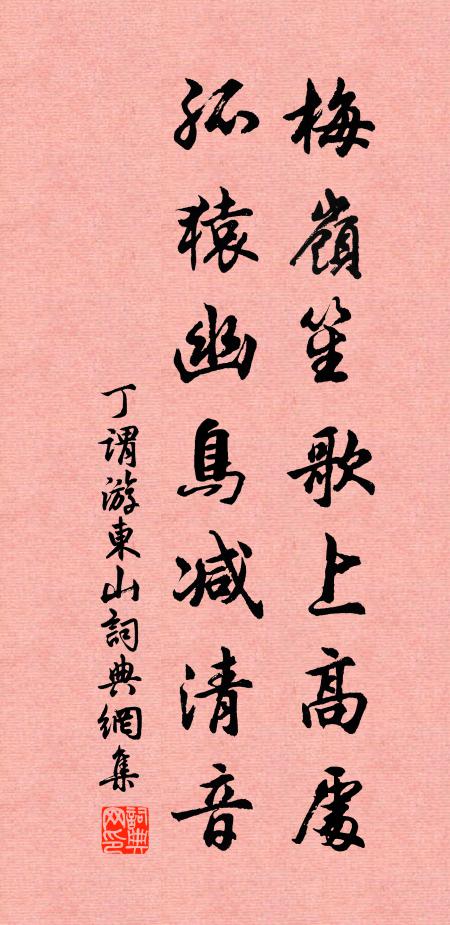 梅嶺笙歌上高處
孤猿幽鳥减清音
丁謂游東山詞典網集
詞典網印